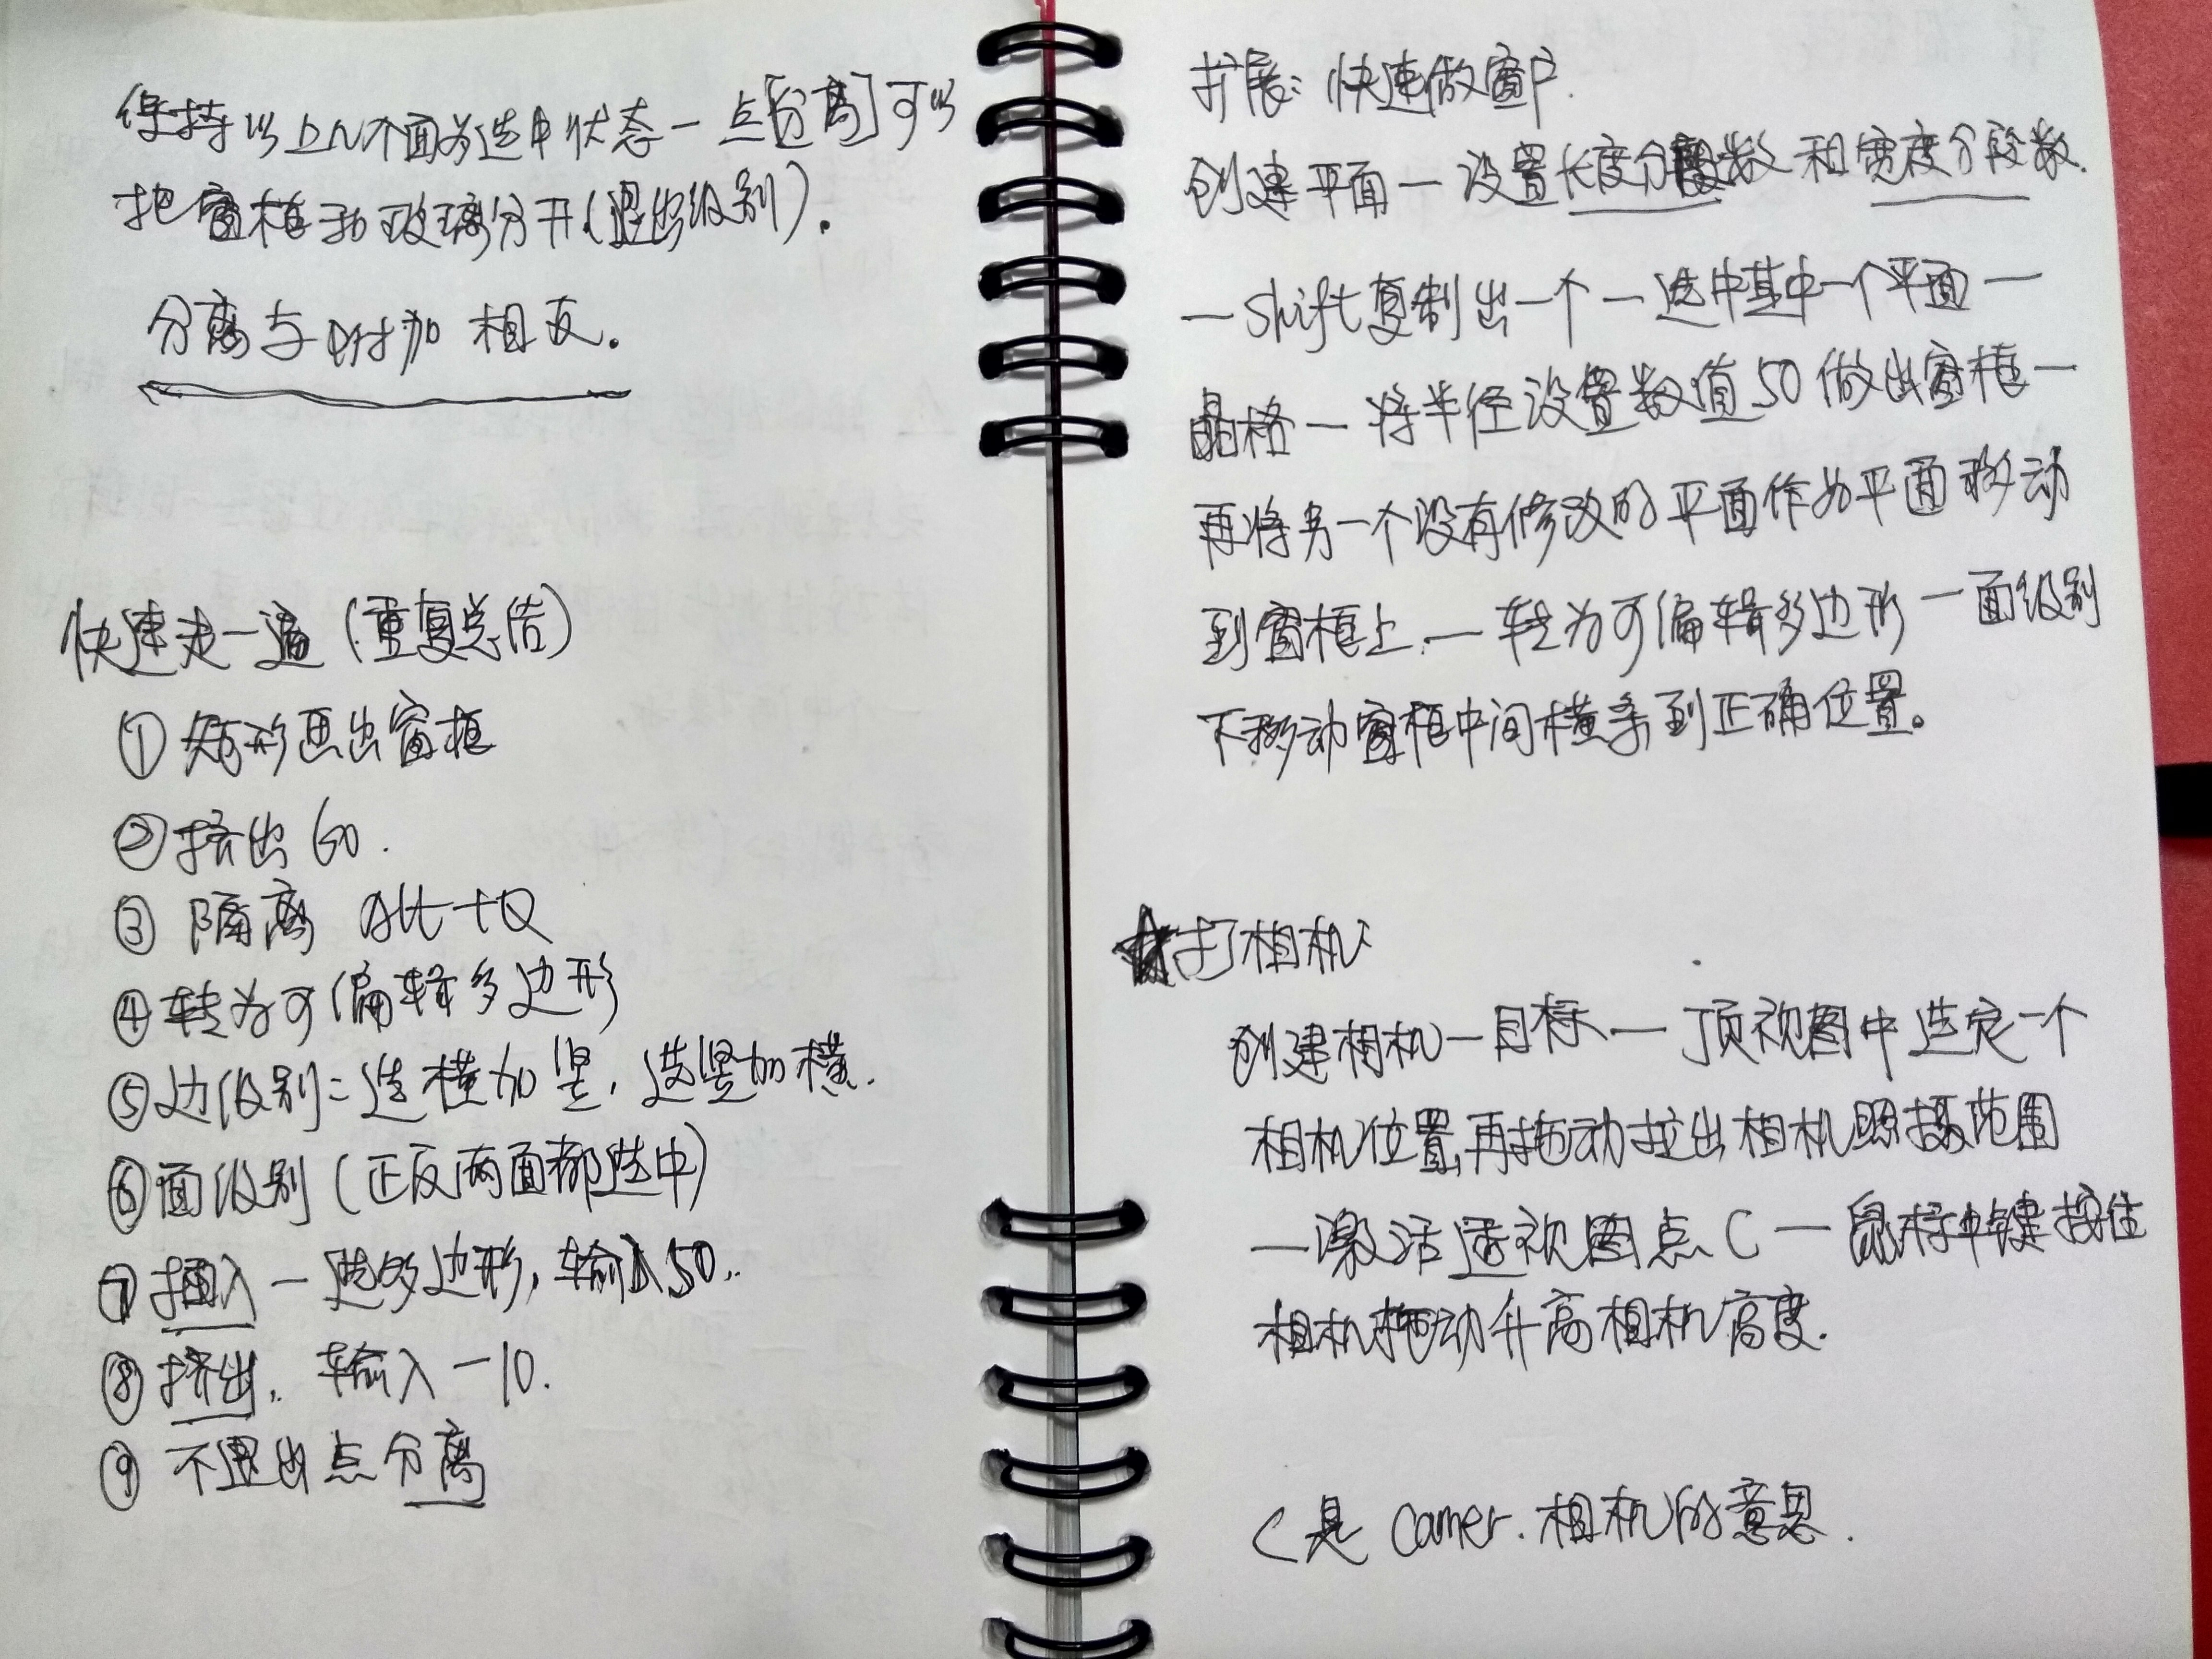 保持以上N个面为选中状态一点[分离]可以
把窗框和玻璃分开(退出级别).
分离与附加 相反.
快速走一遍(重复总结)
① 矩形画出窗框
② 挤出 60.
③ 隔离 Alt+Q
④ 转为可编辑多边形
⑤ 边级别: 选横加竖, 选竖加横.
⑥ 面级别 (正反两面都选中)
⑦ 插入 — 选多边形, 输入50.
⑧ 挤出. 输入 -10.
⑨ 不退出点分离
扩展: 快速做窗户.
创建平面 — 设置长度分段数 和宽度分段数.
— shift复制出一个 — 选中其中一个平面 —
晶格 — 将半径设置数值50做出窗框 —
再将另一个没有修改的平面作为平面移动
到窗框上 — 转为可编辑多边形 — 面级别
下移动窗框中间横条到正确位置。
★打相机
创建相机 — 目标 — 顶视图中选定一个
相机位置,再拖动拉出相机照摄范围
— 激活透视图点C — 鼠标中键按住
相机拖动升高相机高度.
C是 Camer. 相机的意思.